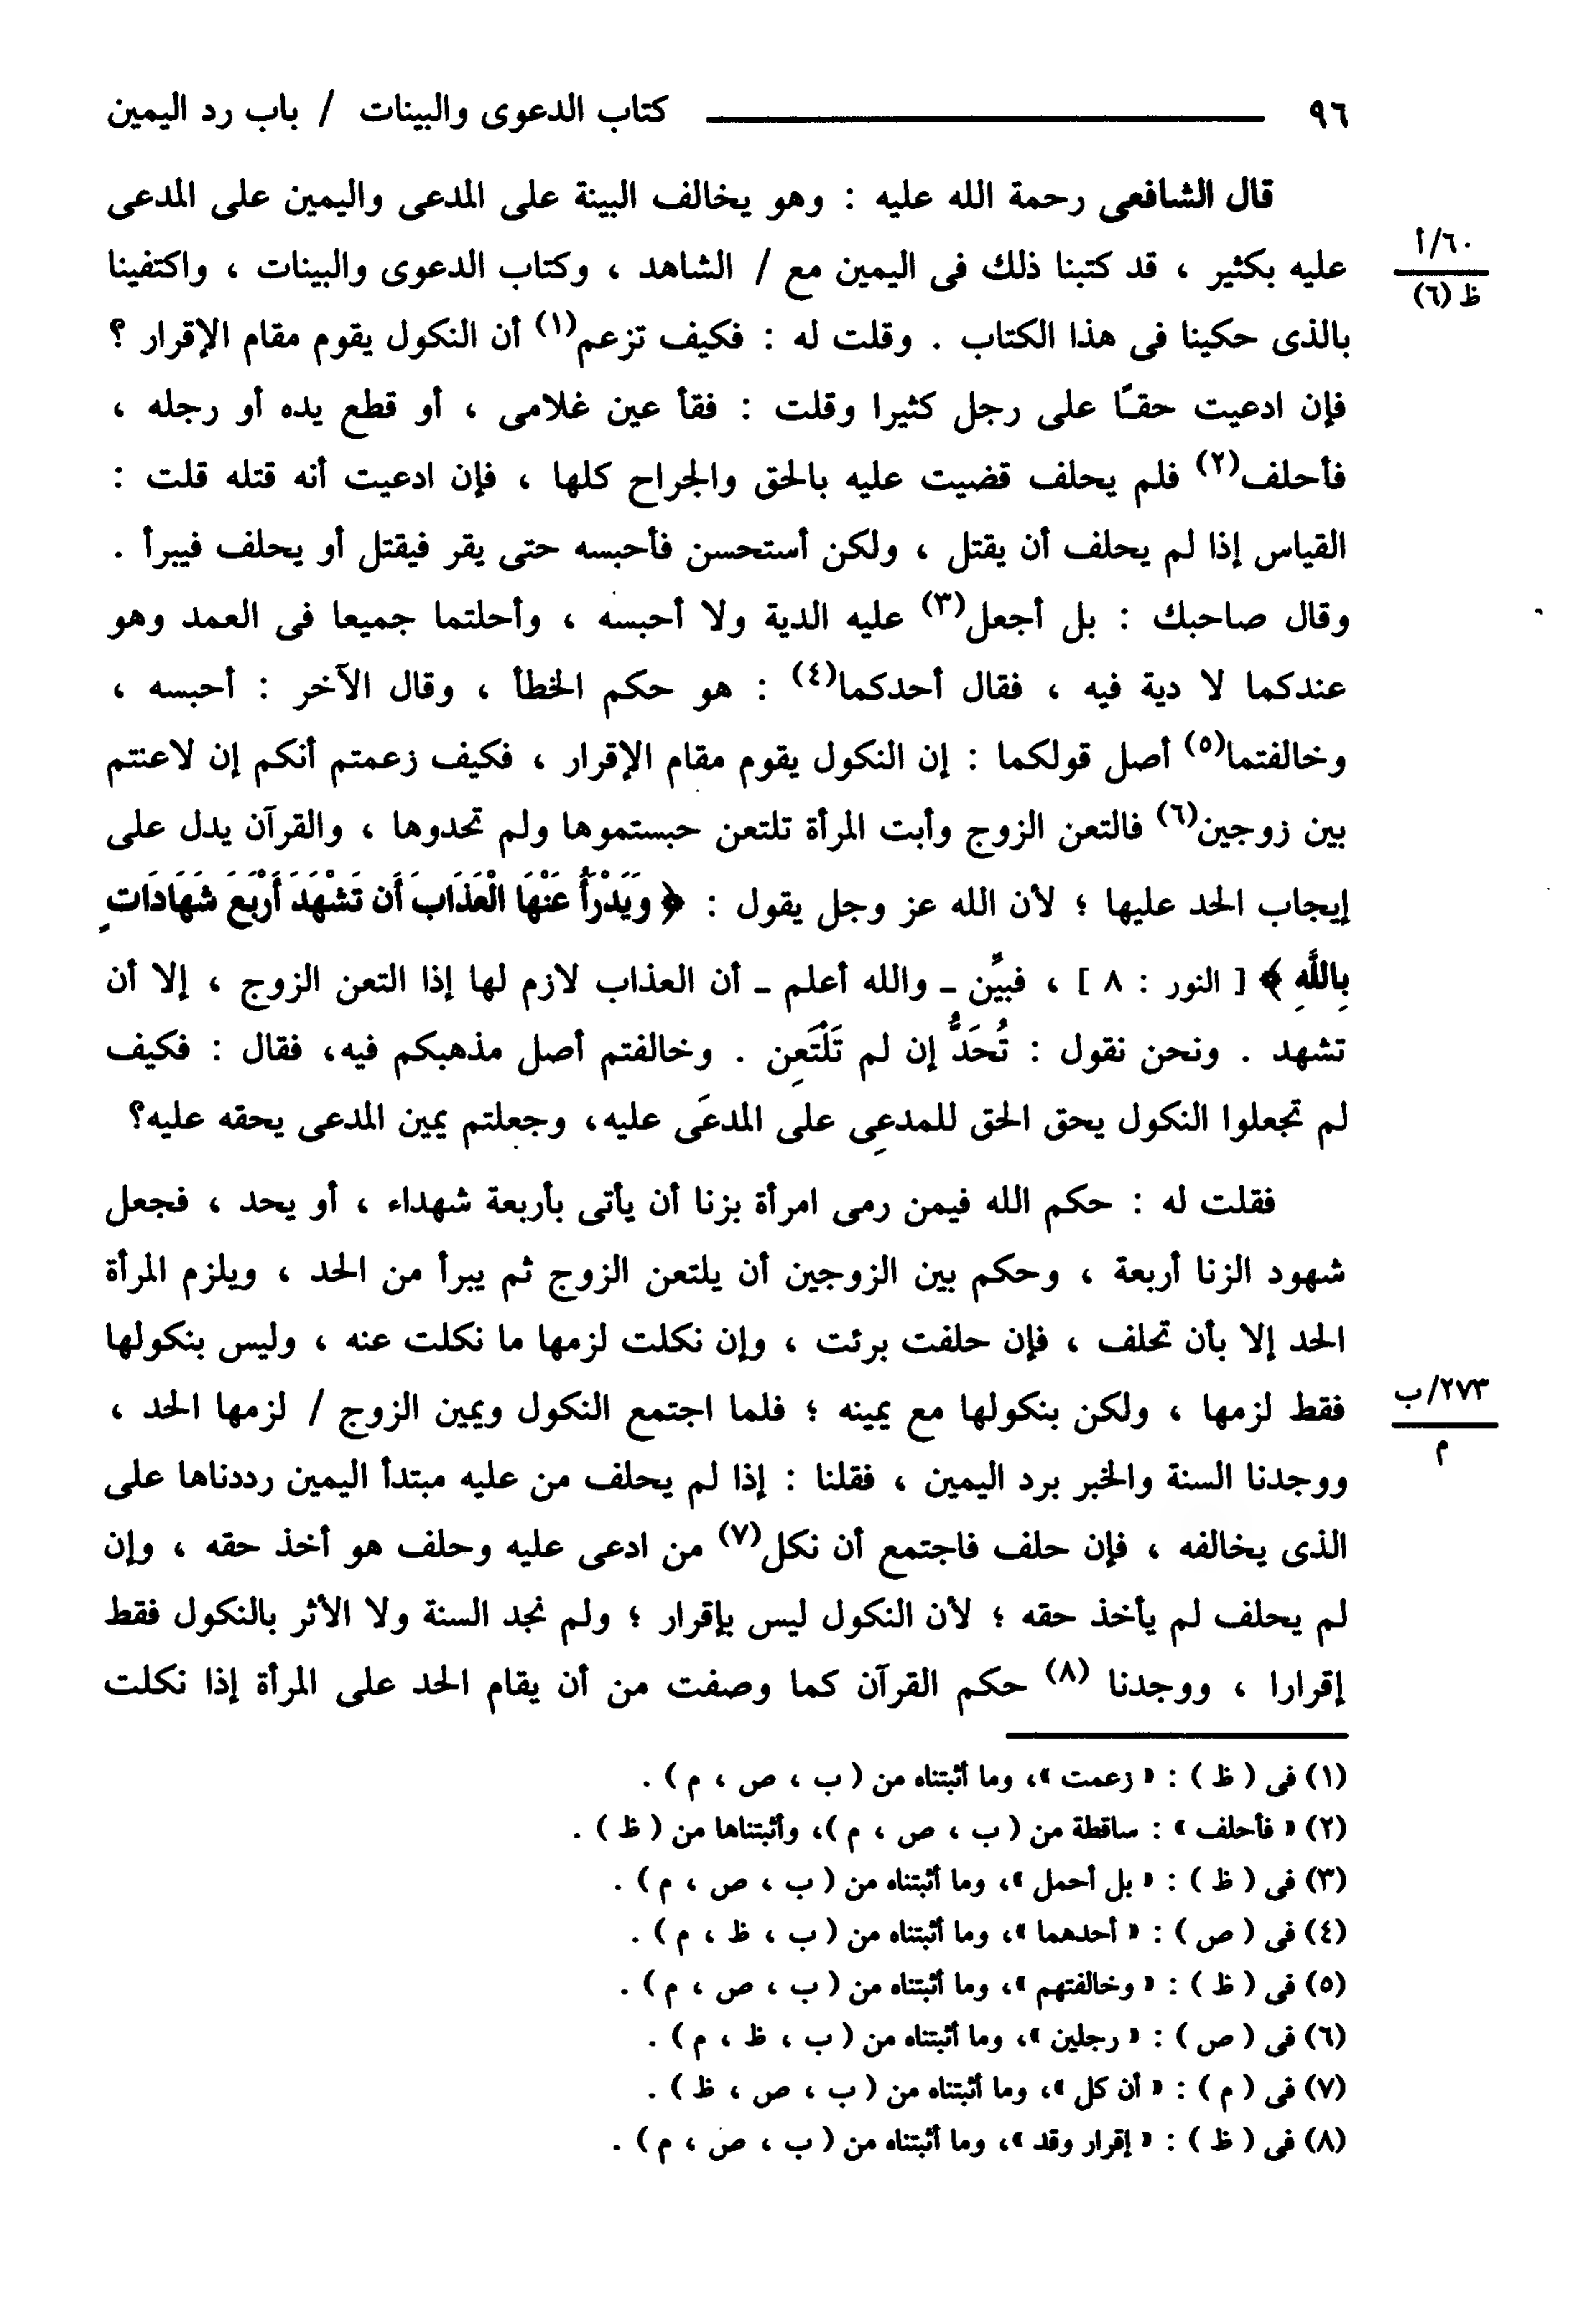 ٩٦ كتاب الدعوى والبينات / باب رد اليمين
قال الشافعى رحمة الله عليه : وهو يخالف البينة على المدعى واليمين على المدعى
عليه بكثير ، قد كتبنا ذلك فى اليمين مع / الشاهد ، وكتاب الدعوى والبينات ، واكتفينا
٦٠/أ
ظ (٦)
بالذى حكينا فى هذا الكتاب . وقلت له : فكيف تزعم(١) أن النكول يقوم مقام الإقرار ؟
فإن ادعيت حقًا على رجل كثيرا وقلت : فقأ عين غلامى ، أو قطع يده أو رجله ،
فأحلف(٢) فلم يحلف قضيت عليه بالحق والجراح كلها ، فإن ادعيت أنه قتله قلت :
القياس إذا لم يحلف أن يقتل ، ولكن أستحسن فأحبسه حتى يقر فيقتل أو يحلف فيبرأ .
وقال صاحبك : بل أجعل(٣) عليه الدية ولا أحبسه ، وأحلتما جميعا فى العمد وهو
عندكما لا دية فيه ، فقال أحدكما(٤) : هو حكم الخطأ ، وقال الآخر : أحبسه ،
وخالفتما(٥) أصل قولكما : إن النكول يقوم مقام الإقرار ، فكيف زعمتم أنكم إن لاعنتم
بين زوجين(٦) فالتعن الزوج وأبت المرأة تلتعن حبستموها ولم تحدوها ، والقرآن يدل على
إيجاب الحد عليها ؛ لأن الله عز وجل يقول : ﴿ وَيَدْرَأُ عَنْهَا الْعَذَابَ أَن تَشْهَدَ أَرْبَعَ شَهَادَاتٍ
بِاللَّهِ ﴾ [ النور : ٨ ] ، فبيَّن ـ والله أعلم ـ أن العذاب لازم لها إذا التعن الزوج ، إلا أن
تشهد . ونحن نقول : تُحَدُّ إن لم تَلْتَعِن . وخالفتم أصل مذهبكم فيه، فقال : فكيف
لم تجعلوا النكول يحق الحق للمدعِى على المدعَى عليه، وجعلتم يمين المدعى يحقه عليه؟
فقلت له : حكم الله فيمن رمى امرأة بزنا أن يأتى بأربعة شهداء ، أو يحد ، فجعل
شهود الزنا أربعة ، وحكم بين الزوجين أن يلتعن الزوج ثم يبرأ من الحد ، ويلزم المرأة
الحد إلا بأن تحلف ، فإن حلفت برئت ، وإن نكلت لزمها ما نكلت عنه ، وليس بنكولها
فقط لزمها ، ولكن بنكولها مع يمينه ؛ فلما اجتمع النكول ويمين الزوج / لزمها الحد ،
٢٧٣/ب
م
ووجدنا السنة والخبر برد اليمين ، فقلنا : إذا لم يحلف من عليه مبتدأ اليمين رددناها على
الذى يخالفه ، فإن حلف فاجتمع أن نكل(٧) من ادعى عليه وحلف هو أخذ حقه ، وإن
لم يحلف لم يأخذ حقه ؛ لأن النكول ليس بإقرار ؛ ولم نجد السنة ولا الأثر بالنكول فقط
إقرارا ، ووجدنا (٨) حكم القرآن كما وصفت من أن يقام الحد على المرأة إذا نكلت
(١) فى ( ظ ) : « زعمت »، وما أثبتناه من ( ب ، ص ، م ) .
(٢) « فأحلف » : ساقطة من ( ب ، ص ، م )، وأثبتناها من ( ظ ) .
(٣) فى ( ظ ) : « بل أحمل »، وما أثبتناه من ( ب ، ص ، م ) .
(٤) فى ( ص ) : « أحدهما »، وما أثبتناه من ( ب ، ظ ، م ) .
(٥) فى ( ظ ) : « وخالفتهم »، وما أثبتناه من ( ب ، ص ، م ) .
(٦) فى ( ص ) : « رجلين »، وما أثبتناه من ( ب ، ظ ، م ) .
(٧) فى ( م ) : « أن كل »، وما أثبتناه من ( ب ، ص ، ظ ) .
(٨) فى ( ظ ) : « إقرار وقد »، وما أثبتناه من ( ب ، ص ، م ) .